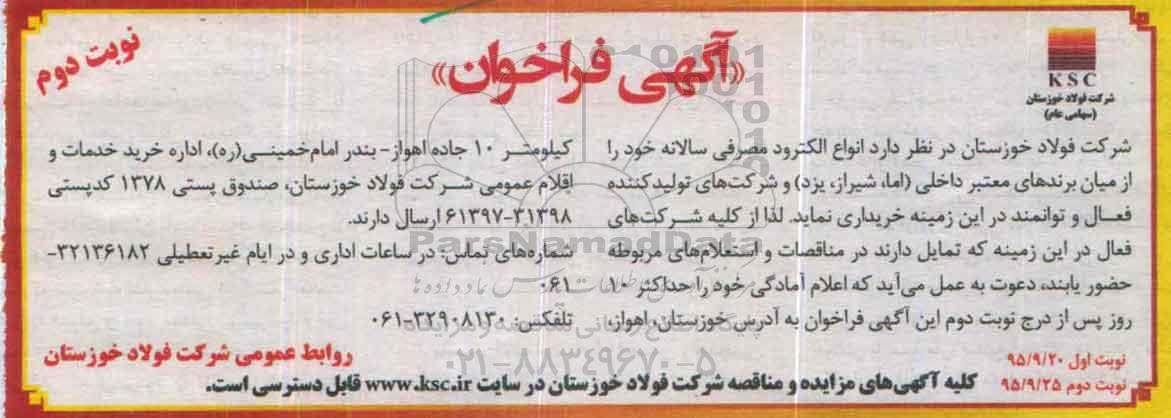 نوبت دوم
«آگهی فراخوان»
KSC
شرکت فولاد خوزستان
(سهامی عام)
شرکت فولاد خوزستان در نظر دارد انواع الکترود مصرفی سالانه خود را
از میان برندهای معتبر داخلی (اما، شیراز، یزد) و شرکت‌های تولیدکننده
فعال و توانمند در این زمینه خریداری نماید. لذا از کلیه شرکت‌های
فعال در این زمینه که تمایل دارند در مناقصات و استعلام‌های مربوطه
حضور یابند، دعوت به عمل می‌آید که اعلام آمادگی خود را حداکثر ۱۰
روز پس از درج نوبت دوم این آگهی فراخوان به آدرس خوزستان، اهواز،
کیلومتر ۱۰ جاده اهواز- بندر امام‌خمینی(ره)، اداره خرید خدمات و
اقلام عمومی شرکت فولاد خوزستان، صندوق پستی ۱۳۷۸ کدپستی
۳۱۳۹۸-۶۱۳۹۷ ارسال دارند.
شماره‌های تماس: در ساعات اداری و در ایام غیرتعطیلی ۳۲۱۳۶۱۸۲-
۰۶۱
تلفکس: ۳۲۹۰۸۱۳۰-۰۶۱
ParsNamadData
۰۲۱-۸۸۳۴۹۶۷۰-۵
نوبت اول ۹۵/۹/۲۰
نوبت دوم ۹۵/۹/۲۵
روابط عمومی شرکت فولاد خوزستان
کلیه آگهی‌های مزایده و مناقصه شرکت فولاد خوزستان در سایت www.ksc.ir قابل دسترسی است.